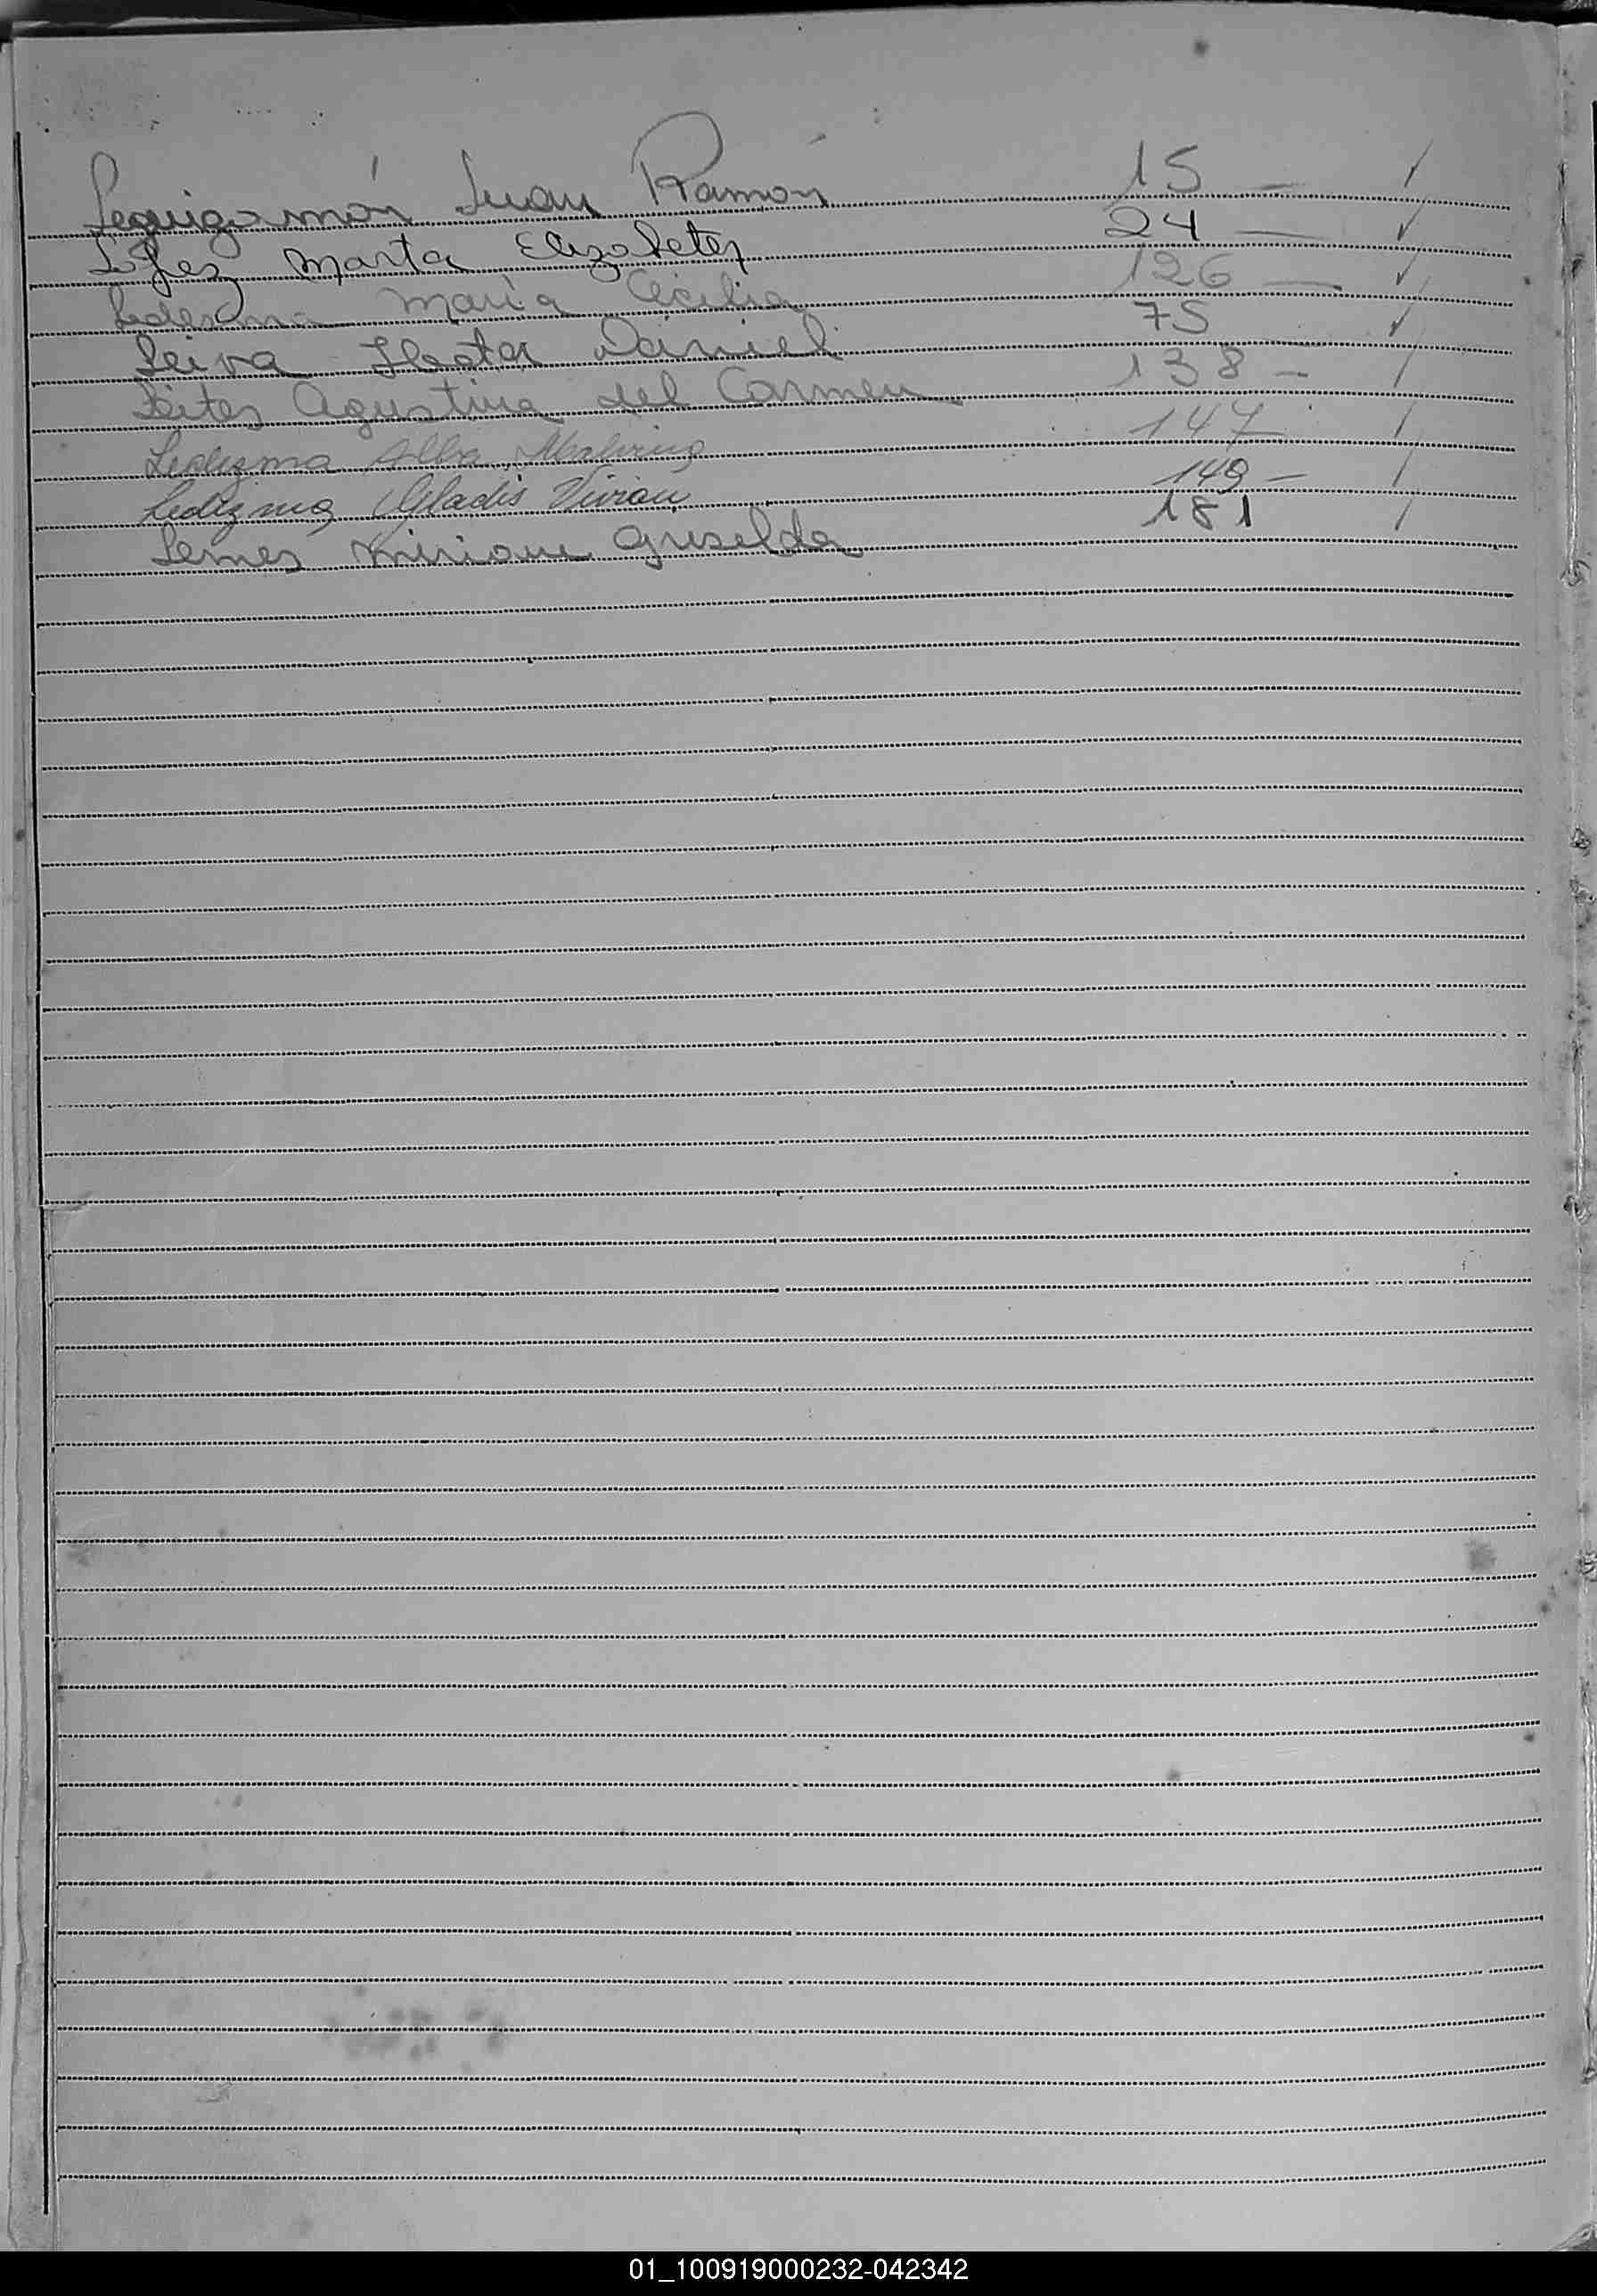 Leguigamón Juan Ramón 15 —
López Marta Elizabeter 24 —
Ledesma María Cecilia 126 —
Leiva Hector Daniel 75
Leites Agustina del Carmen 138 —
Ledezma Alba 147
Ledezma Gladis Vivian 149 —
Lemes Miriam Griselda 181
01_100919000232-042342